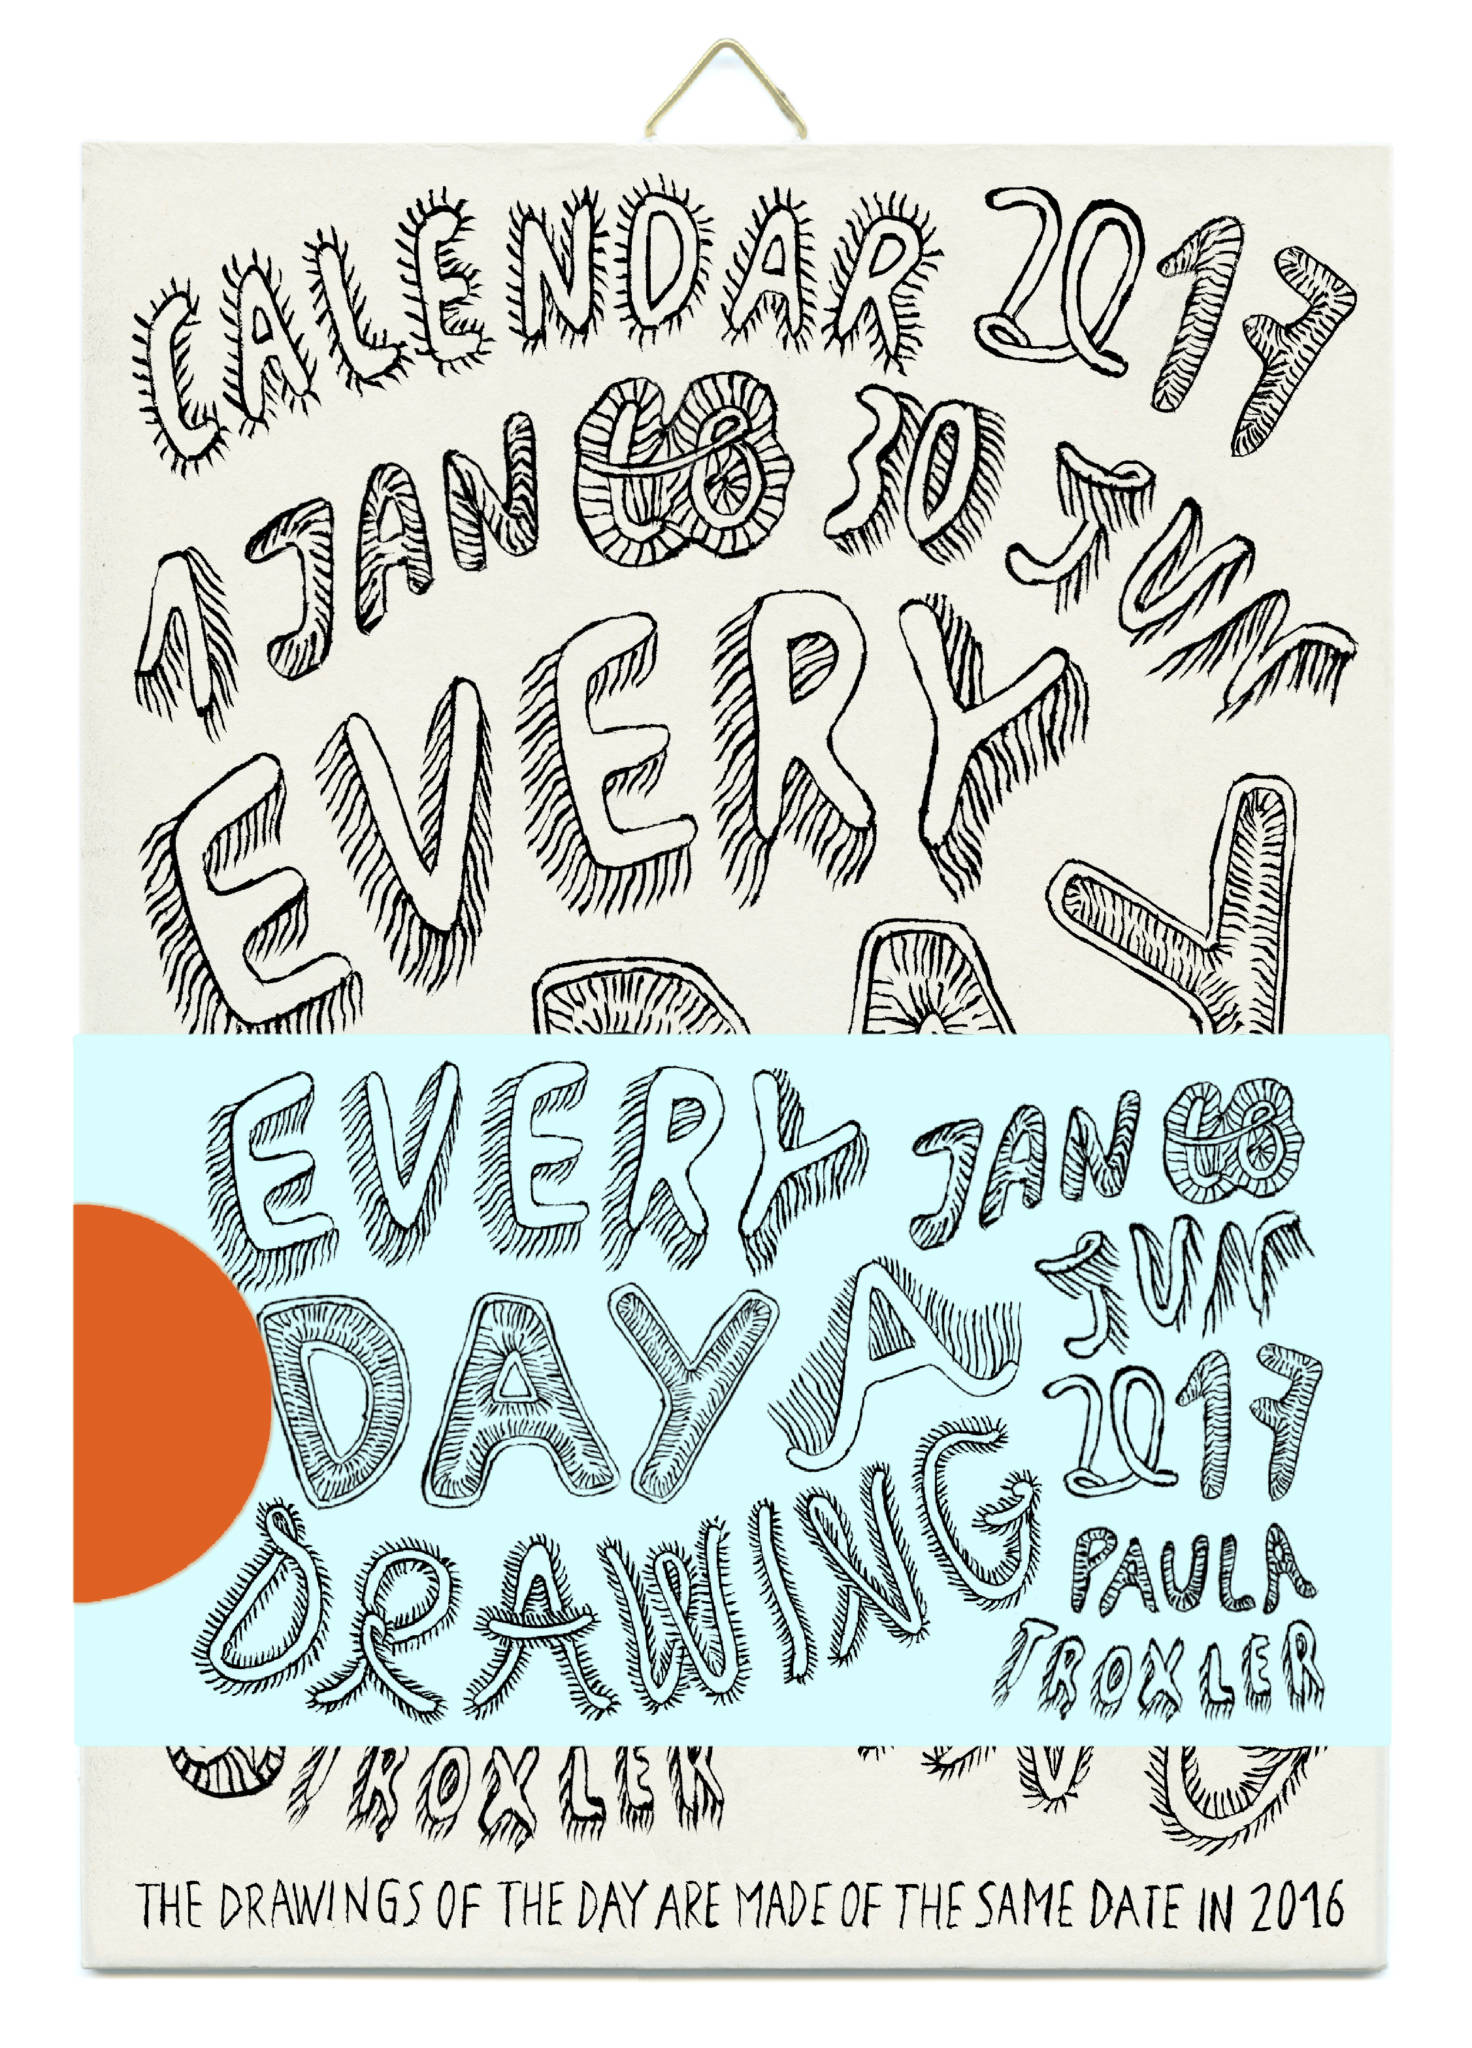 CALENDAR 2017
1 JAN to 30 JUN
EVERY
DAY
EVERY
DAY A
DRAWING
JAN to
JUN
2017
PAULA
TROXLER
TROXLER
THE DRAWINGS OF THE DAY ARE MADE OF THE SAME DATE IN 2016